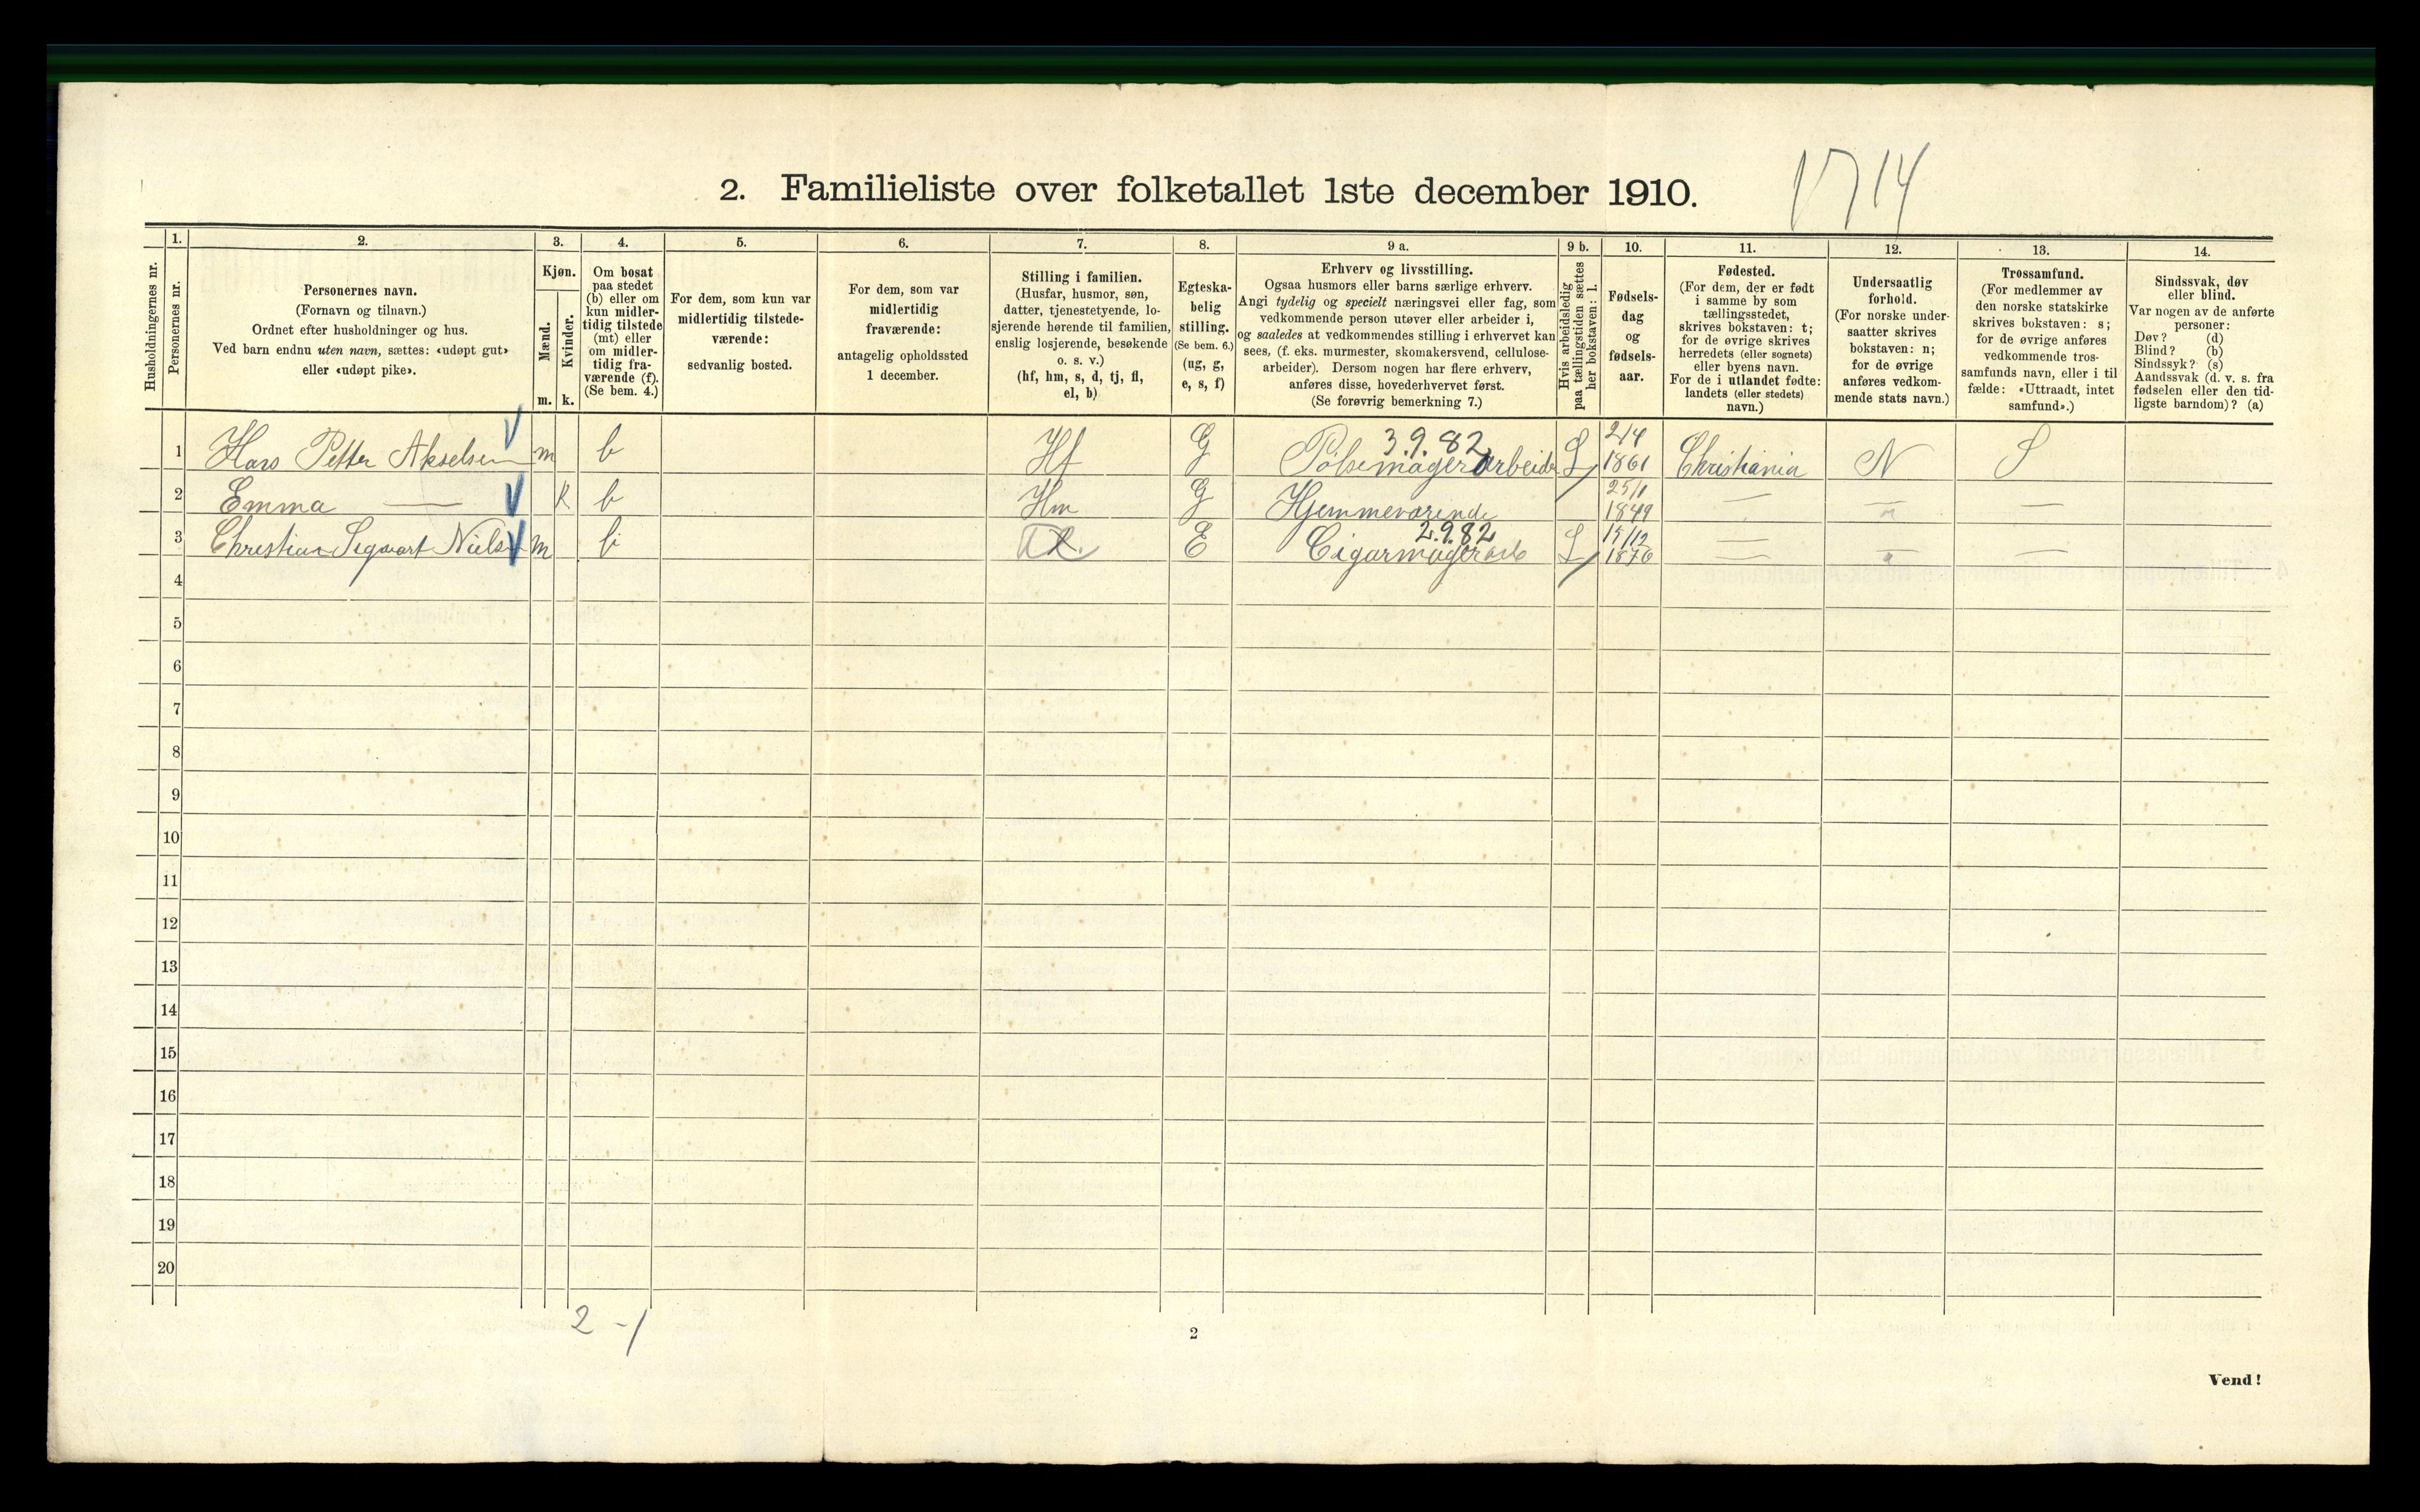 1714
2. Familieliste over folketallet 1ste december 1910.
Husholdningernes nr.
1. Personernes nr.
2. Personernes navn.
(Fornavn og tilnavn.)
Ordnet efter husholdninger og hus.
Ved barn endnu uten navn, sættes: «udøpt gut»
eller «udøpt pike».
3. Kjøn.
Mænd. Kvinder.
m. k.
4. Om bosat
paa stedet
(b) eller om
kun midler-
tidig tilstede
(mt) eller
om midler-
tidig fra-
værende (f).
(Se bem. 4.)
5. For dem, som kun var
midlertidig tilstede-
værende:
sedvanlig bosted.
6. For dem, som var
midlertidig
fraværende:
antagelig opholdssted
1 december.
7. Stilling i familien.
(Husfar, husmor, søn,
datter, tjenestetyende, lo-
sjerende hørende til familien,
enslig losjerende, besøkende
o. s. v.)
(hf, hm, s, d, tj, fl,
el, b)
8. Egteska-
belig
stilling.
(Se bem. 6.)
(ug, g,
e, s, f)
9 a. Erhverv og livsstilling.
Ogsaa husmors eller barns særlige erhverv.
Angi tydelig og specielt næringsvei eller fag, som
vedkommende person utøver eller arbeider i,
og saaledes at vedkommendes stilling i erhvervet kan
sees, (f. eks. murmester, skomakersvend, cellulose-
arbeider). Dersom nogen har flere erhverv,
anføres disse, hovederhvervet først.
(Se forøvrig bemerkning 7.)
9 b. Hvis arbeidsledig
paa tællingstiden sættes
her bokstaven: l.
10. Fødsels-
dag
og
fødsels-
aar.
11. Fødested.
(For dem, der er født
i samme by som
tællingsstedet,
skrives bokstaven: t;
for de øvrige skrives
herredets (eller sognets)
eller byens navn.
For de i utlandet fødte:
landets (eller stedets)
navn.)
12. Undersaatlig
forhold.
(For norske under-
saatter skrives
bokstaven: n;
for de øvrige
anføres vedkom-
mende stats navn.)
13. Trossamfund.
(For medlemmer av
den norske statskirke
skrives bokstaven: s;
for de øvrige anføres
vedkommende tros-
samfunds navn, eller i til
fælde: «Uttraadt, intet
samfund».)
14. Sindssvak, døv
eller blind.
Var nogen av de anførte
personer:
Døv? (d)
Blind? (b)
Sindssyk? (s)
Aandssvak (d. v. s. fra
fødselen eller den tid-
ligste barndom)? (a)
1 Hans Petter Akselsen m b Hf G 3.9.82 Pølsemagerarbeider L 2/4 1861 Christiania N S
2 Emma — k b Hm G Hjemmeværende 25/1 1849 — " —
3 Christian Sigvart Niels m b E 2.9.82 Cigarmagerarb L 15/12 1876 — " —
4
5
6
7
8
9
10
11
12
13
14
15
16
17
18
19
20
2 - 1
2
Vend!